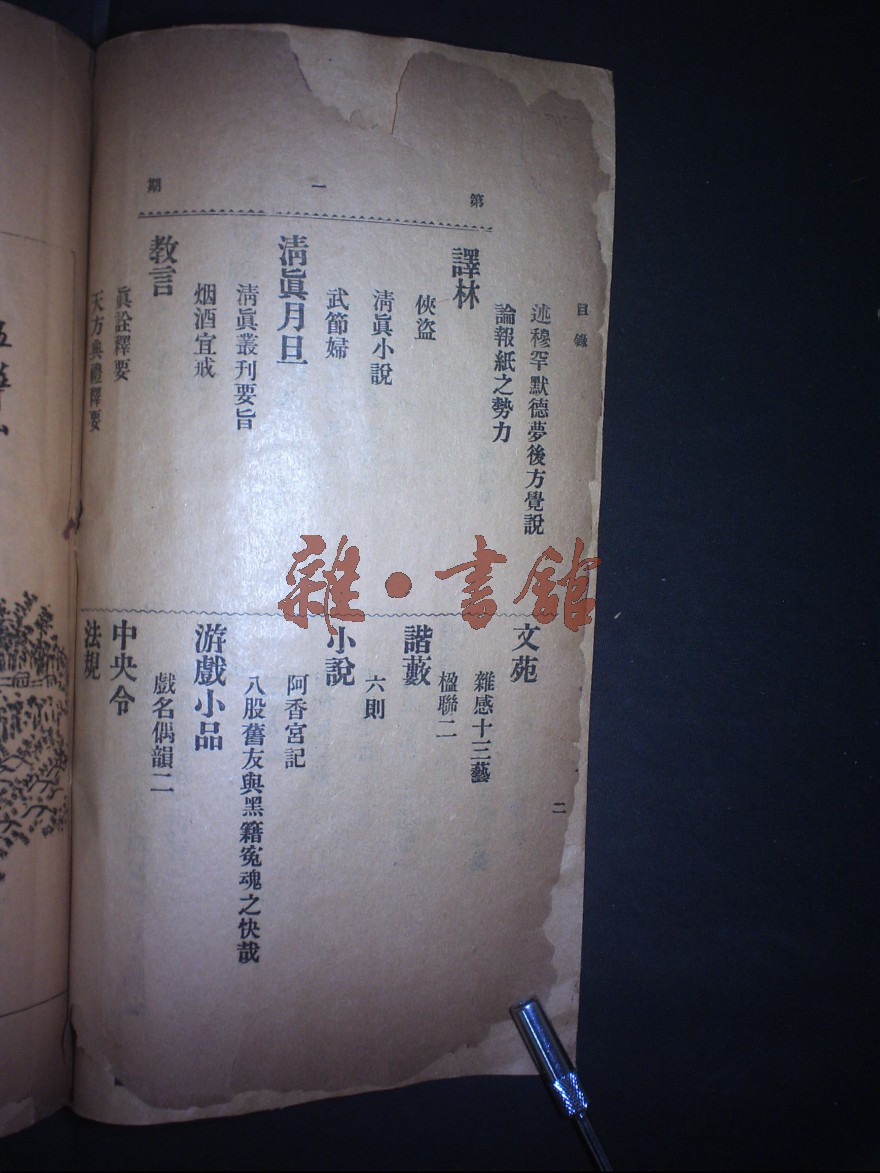 目錄
第一期
述穆罕默德夢後方覺說
論報紙之勢力
譯林
俠盜
清眞小說
武節婦
清眞月旦
清眞叢刊要旨
烟酒宜戒
教言
眞詮釋要
天方典禮釋要
二
文苑
雜感十三藝
楹聯二
諧藪
六則
小說
阿香宮記
八股舊友與黑籍冤魂之快哉
游戲小品
戲名偶韻二
中央令
法規
雜·書館